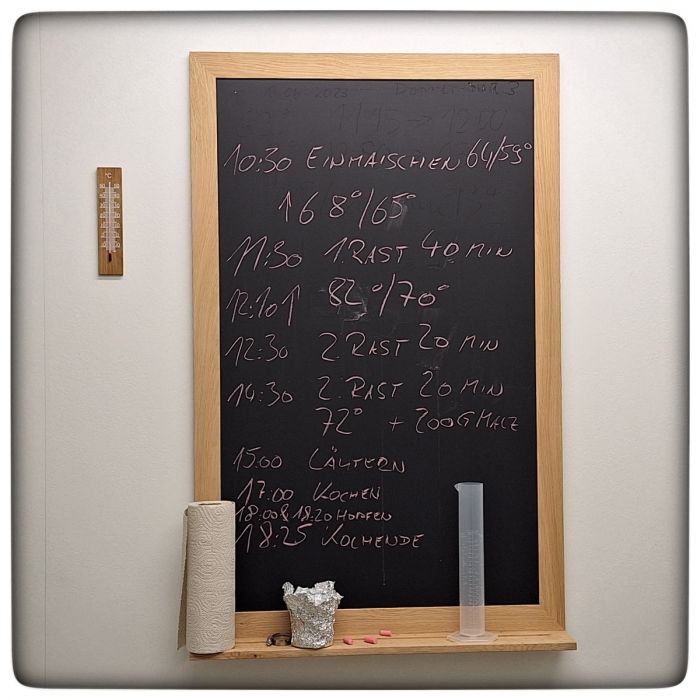 10:30 EINMAISCHEN 64/59°
↑68°/65°
11:30 1. RAST 40 MIN
12:10↑ 82°/70°
12:30 2. RAST 20 MIN
14:30 2. RAST 20 MIN
72° + 200G MALZ
15:00 LÄUTERN
17:00 KOCHEN
18:00 & 18:20 HOPFEN
18:25 KOCHENDE
°C